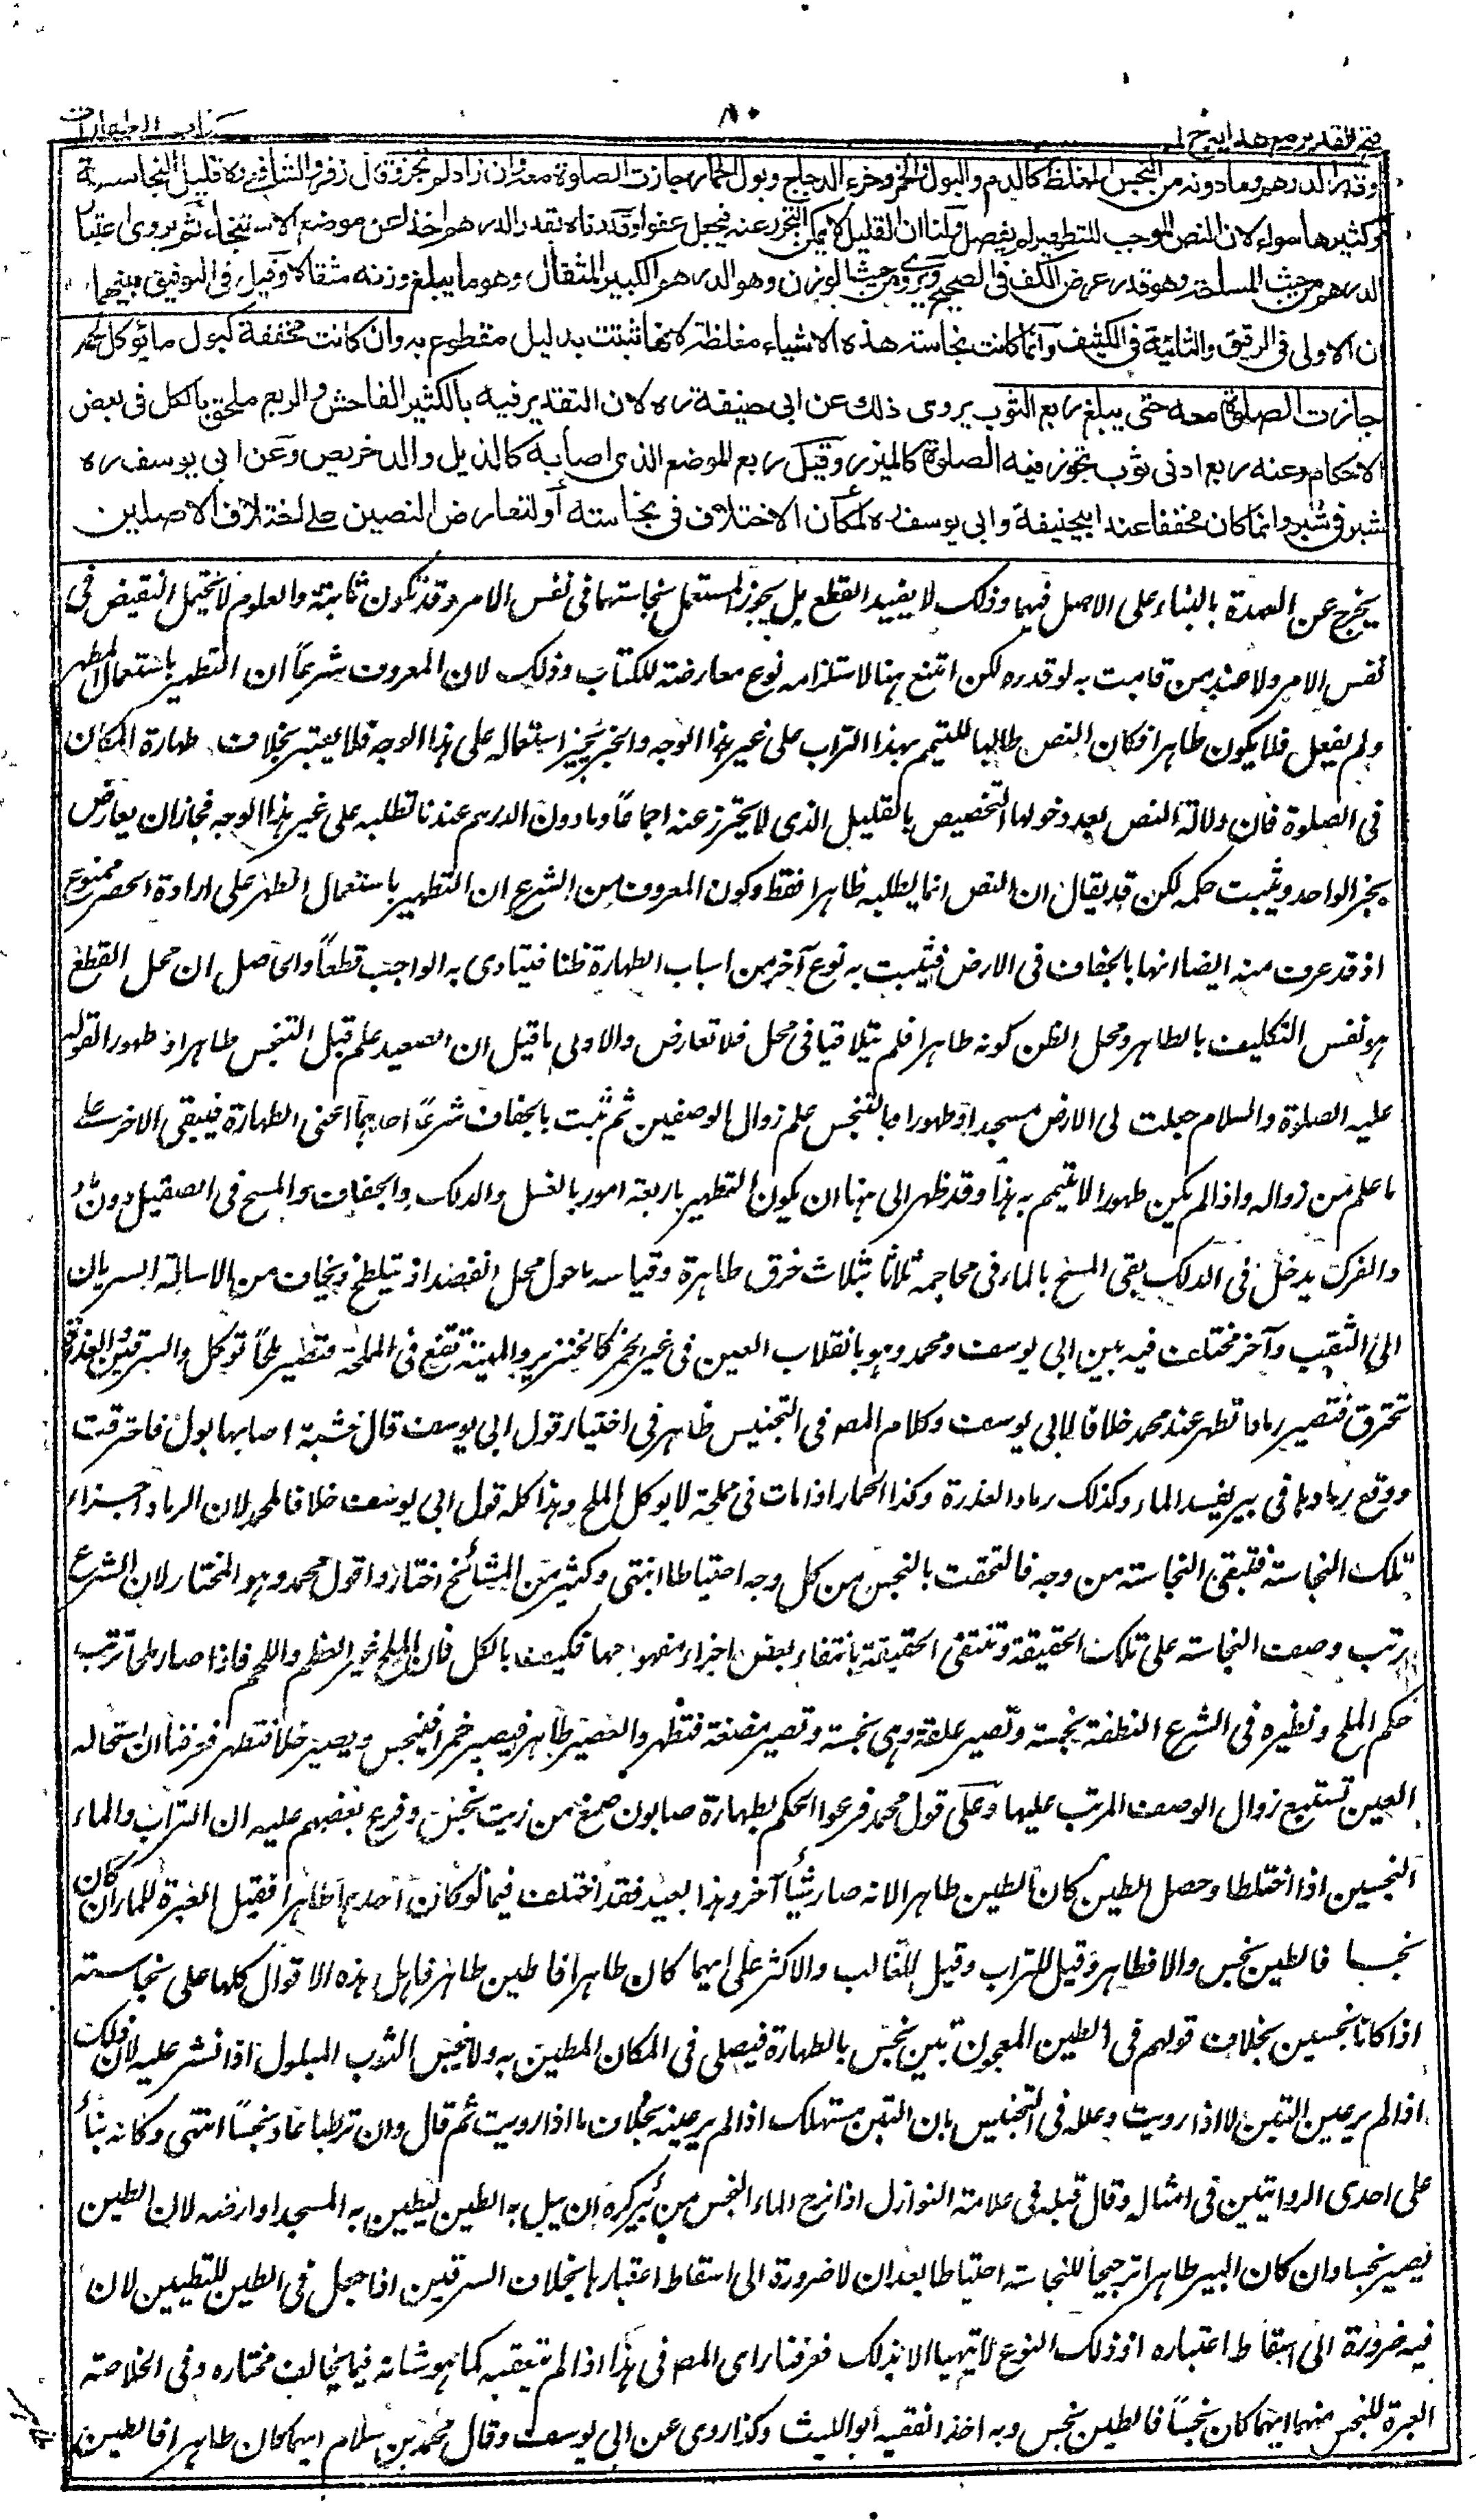 فتح القدير مع هداية ج ا
٨٠
كتاب الطهارات
وقدر الدرهم وما دونه من النجس المغلظ كالدم والبول والخمر وخرء الدجاج وبول الحمار جازت الصلوة معه وان زاد لم تجز وقال زفر والشافعي ره قليل النجاسة
وكثيرها سواء لان النص الموجب للتطهير لم يفصل ولنا ان القليل لا يمكن التحرز عنه فيجعل عفوا وقدرناه بقدر الدرهم اخذا عن موضع الاستنجاء ثم يروى اعتبار
الدرهم من حيث المساحة وهو قدر عرض الكف في الصحيح ويروى من حيث الوزن وهو الدرهم الكبير المثقال وهو ما يبلغ وزنه مثقالا وقيل في التوفيق بينهما
ان الاولى في الرقيق والثانية في الكثيف وانما كانت نجاسة هذه الاشياء مغلظة لانها ثبتت بدليل مقطوع به وان كانت مخففة كبول ما يؤكل لحمه
جازت الصلوة معه حتى يبلغ ربع الثوب يروى ذلك عن ابي حنيفة ره لان التقدير فيه بالكثير الفاحش والربع ملحق بالكل في بعض
الاحكام وعنه ربع ادنى ثوب تجوز فيه الصلوة كالميزر وقيل ربع الموضع الذي اصابه كالذيل والدخريص وعن ابي يوسف ره
شبر في شبر وانما كان مخففا عند ابيحنيفة وابي يوسف ره لمكان الاختلاف في نجاسته او لتعارض النصين على اختلاف الاصلين
يخرج عن العهدة بالبناء على الاصل فيهما وذلك لا يفيد القطع بل يجوز المستعمل نجاستهما في نفس الامر وقد تكون ثابتة والعلوم لا تحتمل النقيض في
نفس الامر ولا عند من قامت به لو قدره لكن امتنع هنا لاستلزامه نوع معارضة للكتاب وذلك لان المعروف شرعا ان التطهير باستعمال المطهر
ولم يفعل فلا يكون طاهرا فكان النص طالبا للتيمم بهذا التراب على غير هذا الوجه والخبر يجيز استعماله على هذا الوجه فلا يعتبر بخلاف طهارة المكان
في الصلوة فان دلالة النص بعد دخولها التخصيص بالقليل الذي لا يحترز عنه اجماعا وما دون الدرهم عندنا تطلبه على غير هذا الوجه فجاز ان يعارض
بخبر الواحد ويثبت حكمه لكن قد يقال ان النص انما يطلبه طاهرا فقط وكون المعروف من الشرع ان التطهير باستعمال المطهر على ارادة الحصر ممنوع
اذ قد عرف منه ايضا انها بالجفاف في الارض فيثبت به نوع آخر من اسباب الطهارة ظنا فيتادى به الواجب قطعا والحاصل ان محل القطع
هو نفس التكليف بالطاهر ومحل الظن كونه طاهرا فلم يتلاقيا في محل فلا تعارض والاولى ما قيل ان الصعيد علم قبل التنجس طاهرا وطهورا لقوله
عليه الصلوة والسلام جعلت لي الارض مسجدا وطهورا وبالتنجس علم زوال الوصفين ثم ثبت بالجفاف شرعا احدهما اعني الطهارة فيبقى الاخر على
ما علم من زواله واذا لم يكن طهورا لا يتيمم به هذا وقد ظهر الى هنا ان يكون التطهير باربعة امور بالغسل والدلك والجفاف والمسح في الصقيل دون ماء
والفرك يدخل في الدلك بقي المسح بالماء في محاجمه ثلاثا بثلاث خرق طاهرة وقياسه ما حول محل الفصد اذا تلطخ ويخاف من الاسالة السريان
الى الثقب وآخر مختلف فيه بين ابي يوسف ومحمد وهو بانقلاب العين في غير الخمر كالخنزير والميتة تقع في المملحة فتصير ملحا تؤكل والسرقين والعذرة
تحترق فتصير رمادا تطهر عند محمد خلافا لابي يوسف وكلام المص في التجنيس ظاهر في اختيار قول ابي يوسف قال خشبة اصابها بول فاحترقت
ووقع رمادها في بير يفسد الماء وكذلك رماد العذرة وكذا الحمار اذا مات في مملحة لا يوكل الملح وهذا كله قول ابي يوسف خلافا لمحمد لان الرماد اجزاء
تلك النجاسة فتبقى النجاسة من وجه فالتحقت بالنجس من كل وجه احتياطا انتهى وكثير من المشائخ اختاروا قول محمد وهو المختار لان الشرع
رتب وصف النجاسة على تلك الحقيقة وتنتفي الحقيقة بانتفاء بعض اجزاء مفهومها فكيف بالكل فان الملح غير العظم واللحم فاذا صار ملحا ترتب
حكم الملح ونظيره في الشرع النطفة نجسة وتصير علقة وهي نجسة وتصير مضغة فتطهر والعصير طاهر فيصير خمرا فينجس ويصير خلا فتطهر فعرفنا ان استحالة
العين تستتبع زوال الوصف المرتب عليها وعلى قول محمد فرعوا الحكم بطهارة صابون صنع من زيت نجس وفرع بعضهم عليه ان التراب والماء
النجسين اذا اختلطا وحصل الطين كان الطين طاهرا لانه صار شيئا آخر وهذا بعيد فقد اختلف فيما لو كان احدهما طاهرا فقيل العبرة للماء ان كان
نجسا فالطين نجس والا فطاهر وقيل للتراب وقيل للغالب والاكثر على ايهما كان طاهرا فالطين طاهر فاهل هذه الاقوال كلها على نجاسته
اذا كانا نجسين بخلاف قولهم في الطين المعجون بتبن نجس بالطهارة فيصلى في المكان المطين به ولا ينجس الثوب المبلول اذا نشر عليه لان ذلك
اذا لم ير عين التبن لا اذا رويت وعلله في التجنيس بان التبن مستهلك اذا لم ير عينه بخلاف ما اذا رويت ثم قال وان ترطبا عاد نجسا انتهى وكانه بناء
على احدى الروايتين في امثاله وقال قبله في علامة النوازل اذا نزح الماء النجس من بير كره ان يبل به الطين ليطين به المسجد او ارضه لان الطين
يصير نجسا وان كان البير طاهرا ترجيحا للنجاسة احتياطا بعد ان لا ضرورة الى اسقاط اعتبارها بخلاف السرقين اذا جعل في الطين للتطيين لان
فيه ضرورة الى اسقاط اعتباره اذ ذلك النوع لا يتهيا الا بذلك فعرفنا راى المص في هذا اذا لم يتعقبه كما هو شانه فيما يخالف مختاره وفي الخلاصة
العبرة للنجس منهما ايهما كان نجسا فالطين نجس وبه اخذ الفقيه ابو الليث وكذا روى عن ابي يوسف وقال محمد بن سلام ايهما كان طاهرا فالطين